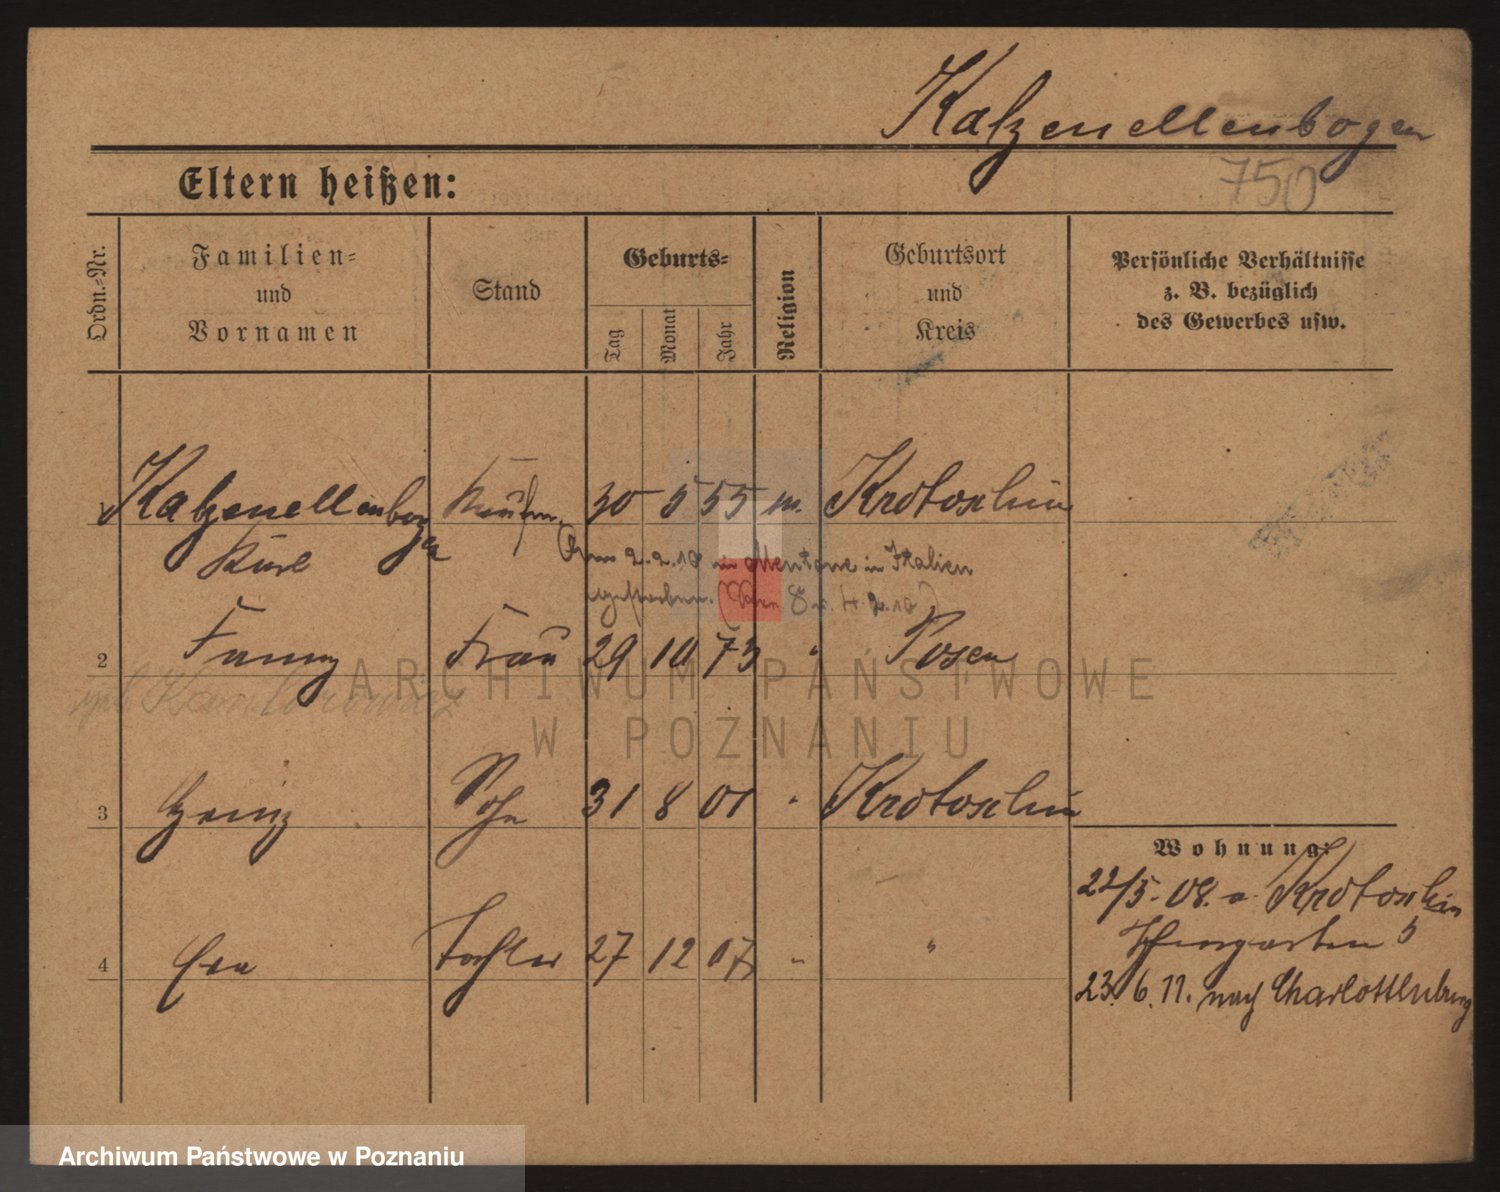 Katzenellenbogen
750
Eltern heißen:
Ordn.-Nr.
Familien-
und
Vornamen
Stand
Geburts-
Tag
Monat
Jahr
Religion
Geburtsort
und
Kreis
Persönliche Verhältnisse
z. B. bezüglich
des Gewerbes usw.
1 Katzenellenbogen Kaufm. 30 5 55 m. Krotoschin
Kurl
(Am 2.2.10 in Mentone in Italien
gestorben. 4.2.10)
2 Fanny Frau 29 10 73 " Posen
geb. Kantorowicz
3 Heinz Sohn 31 8 01 " Krotoschin
4 Eva Tochter 27 12 07 " "
Wohnung:
22/5. 08. a. Krotoschin
Thiergarten 5
23. 6. 11. nach Charlottenburg
ARCHIWUM PAŃSTWOWE
W POZNANIU
Archiwum Państwowe w Poznaniu